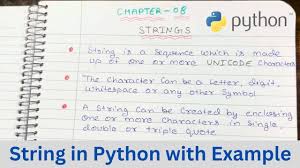 CHAPTER-08
python
STRINGS
String is a sequence which is made
up of one or more UNICODE character
The character can be a letter, digit,
whitespace or any other symbol
A String can be created by enclosing
one or more characters in single,
double or triple quote
String in Python with Example